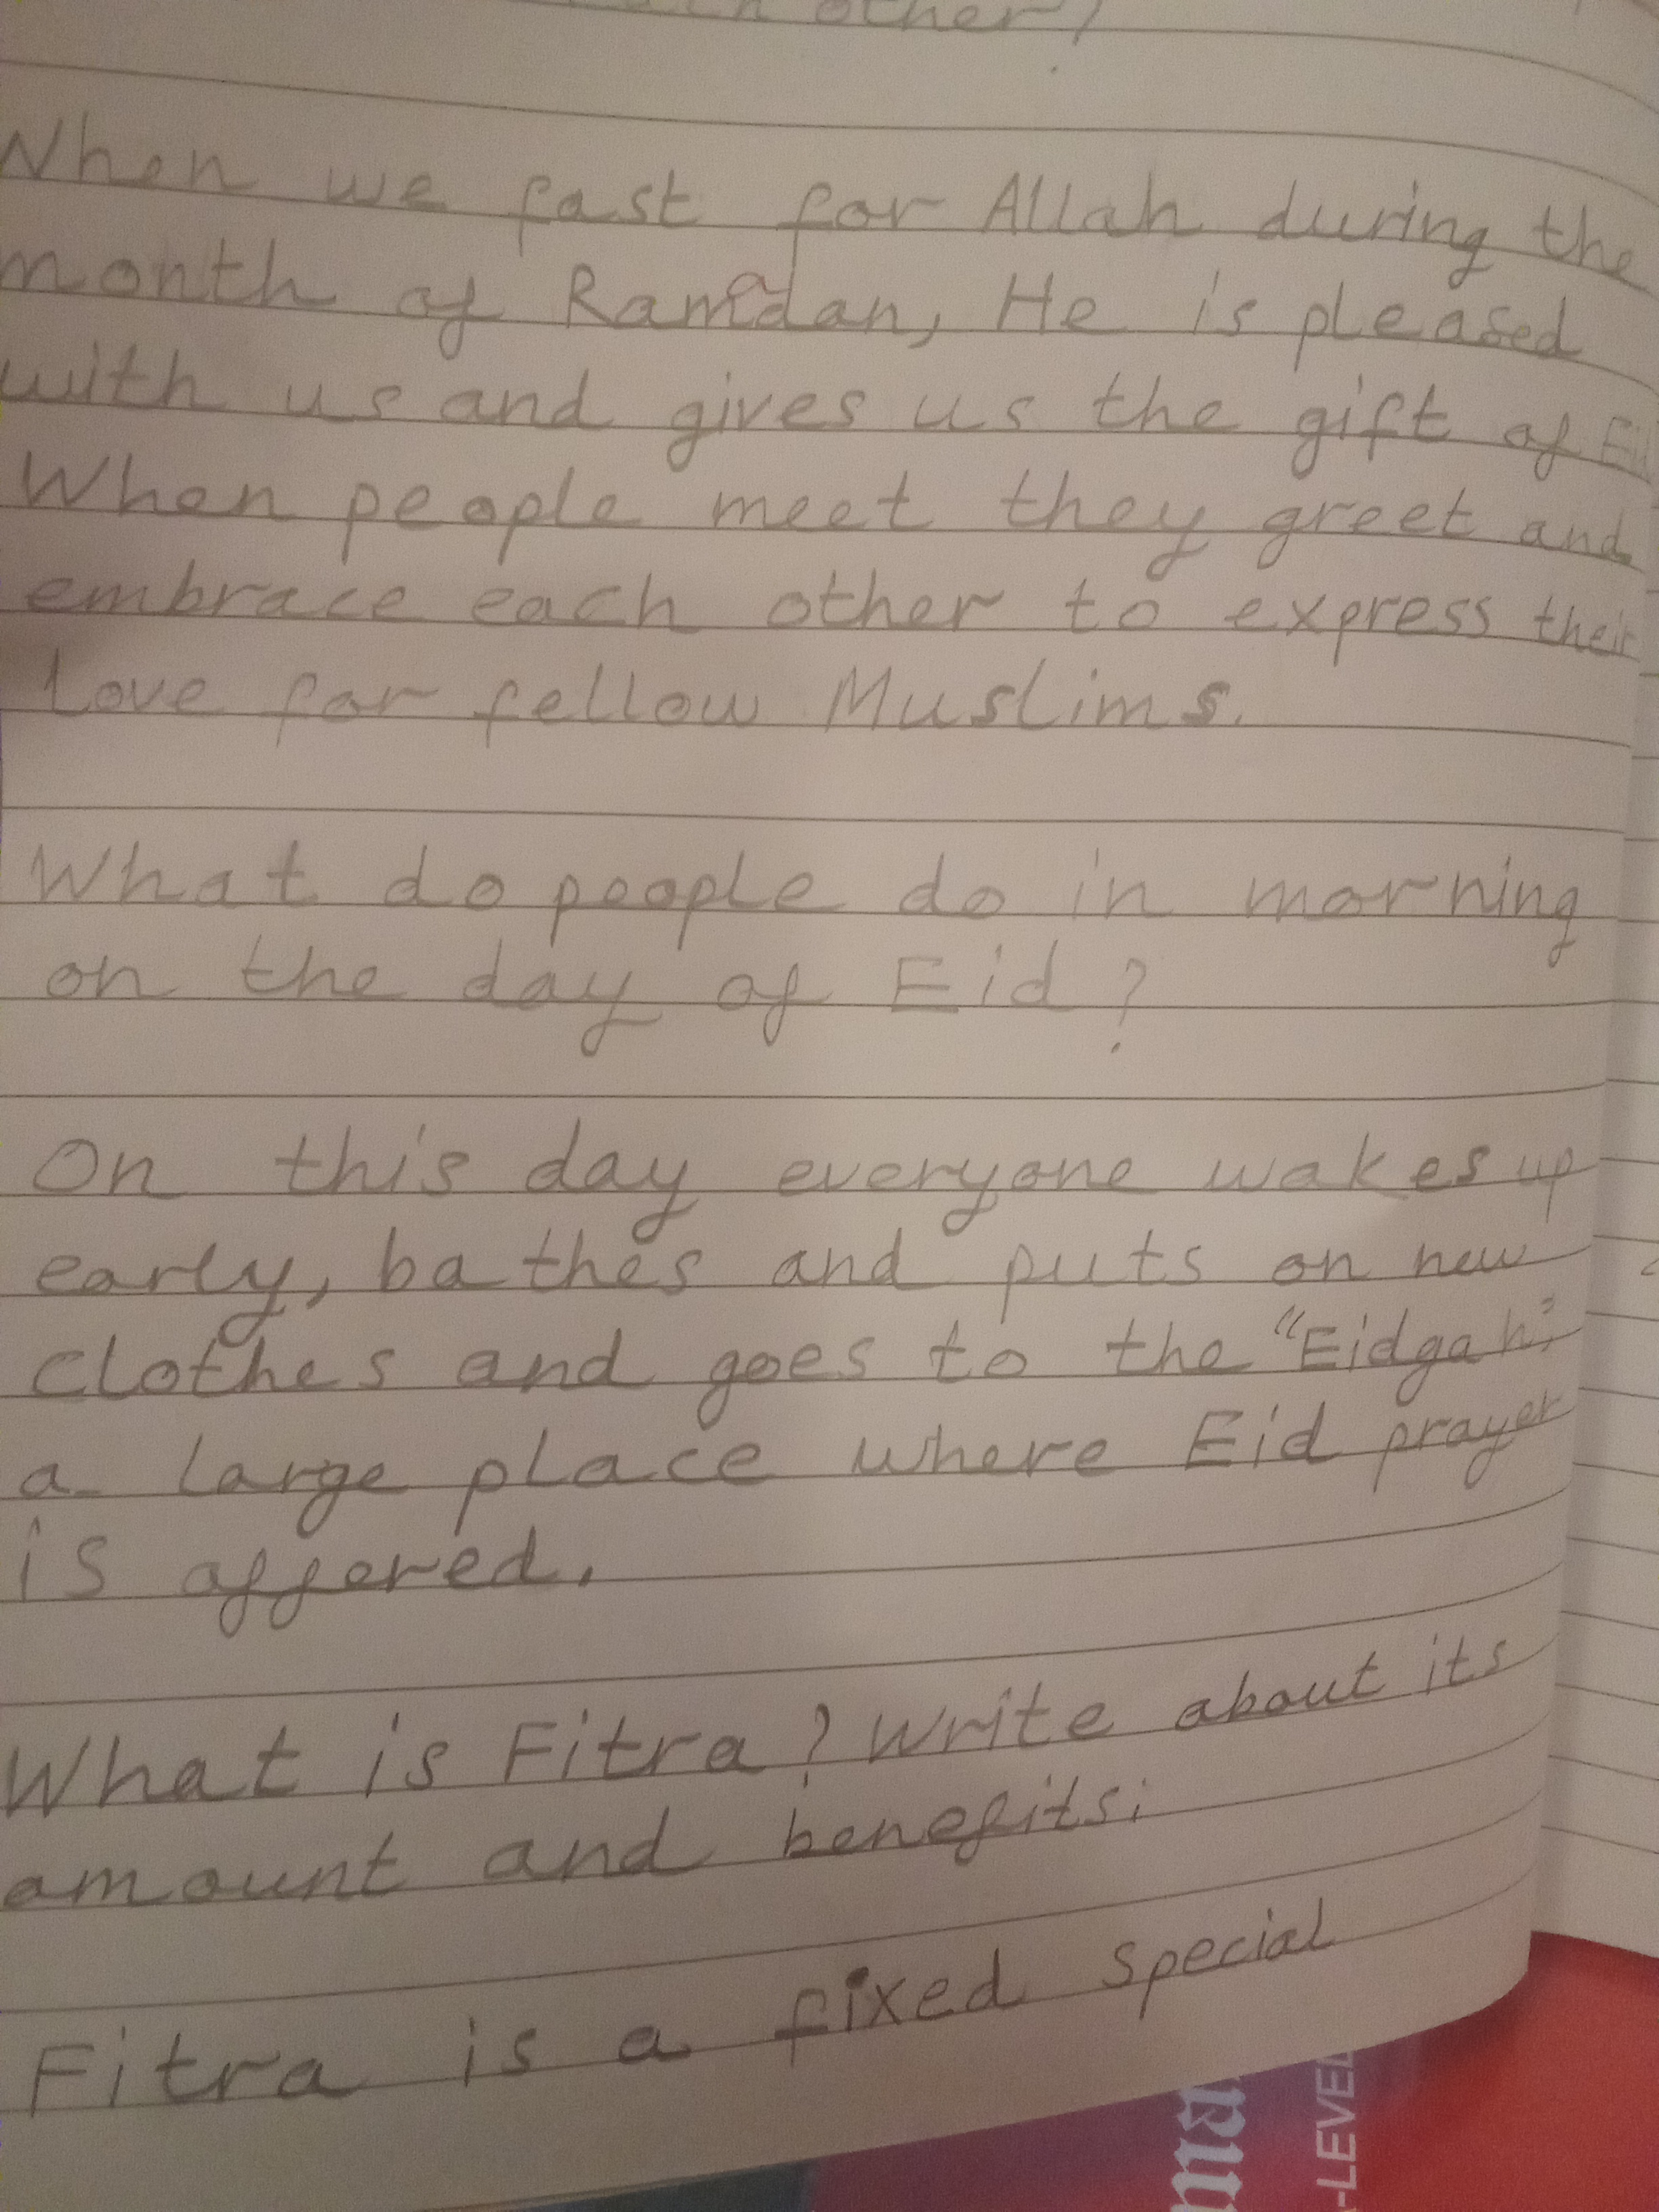 other)
When we fast for Allah during the
month of Ramadan, He is pleased
with us and gives us the gift of Eid
When people meet they greet and
embrace each other to express their
love for fellow Muslims.
What do people do in morning
on the day of Eid?
On this day everyone wakes up
early, bathes and puts on new
clothes and goes to the "Eidgah"
a large place where Eid prayer
is offered.
What is Fitra? Write about its
amount and benefits:
Fitra is a fixed special
-LEVEL